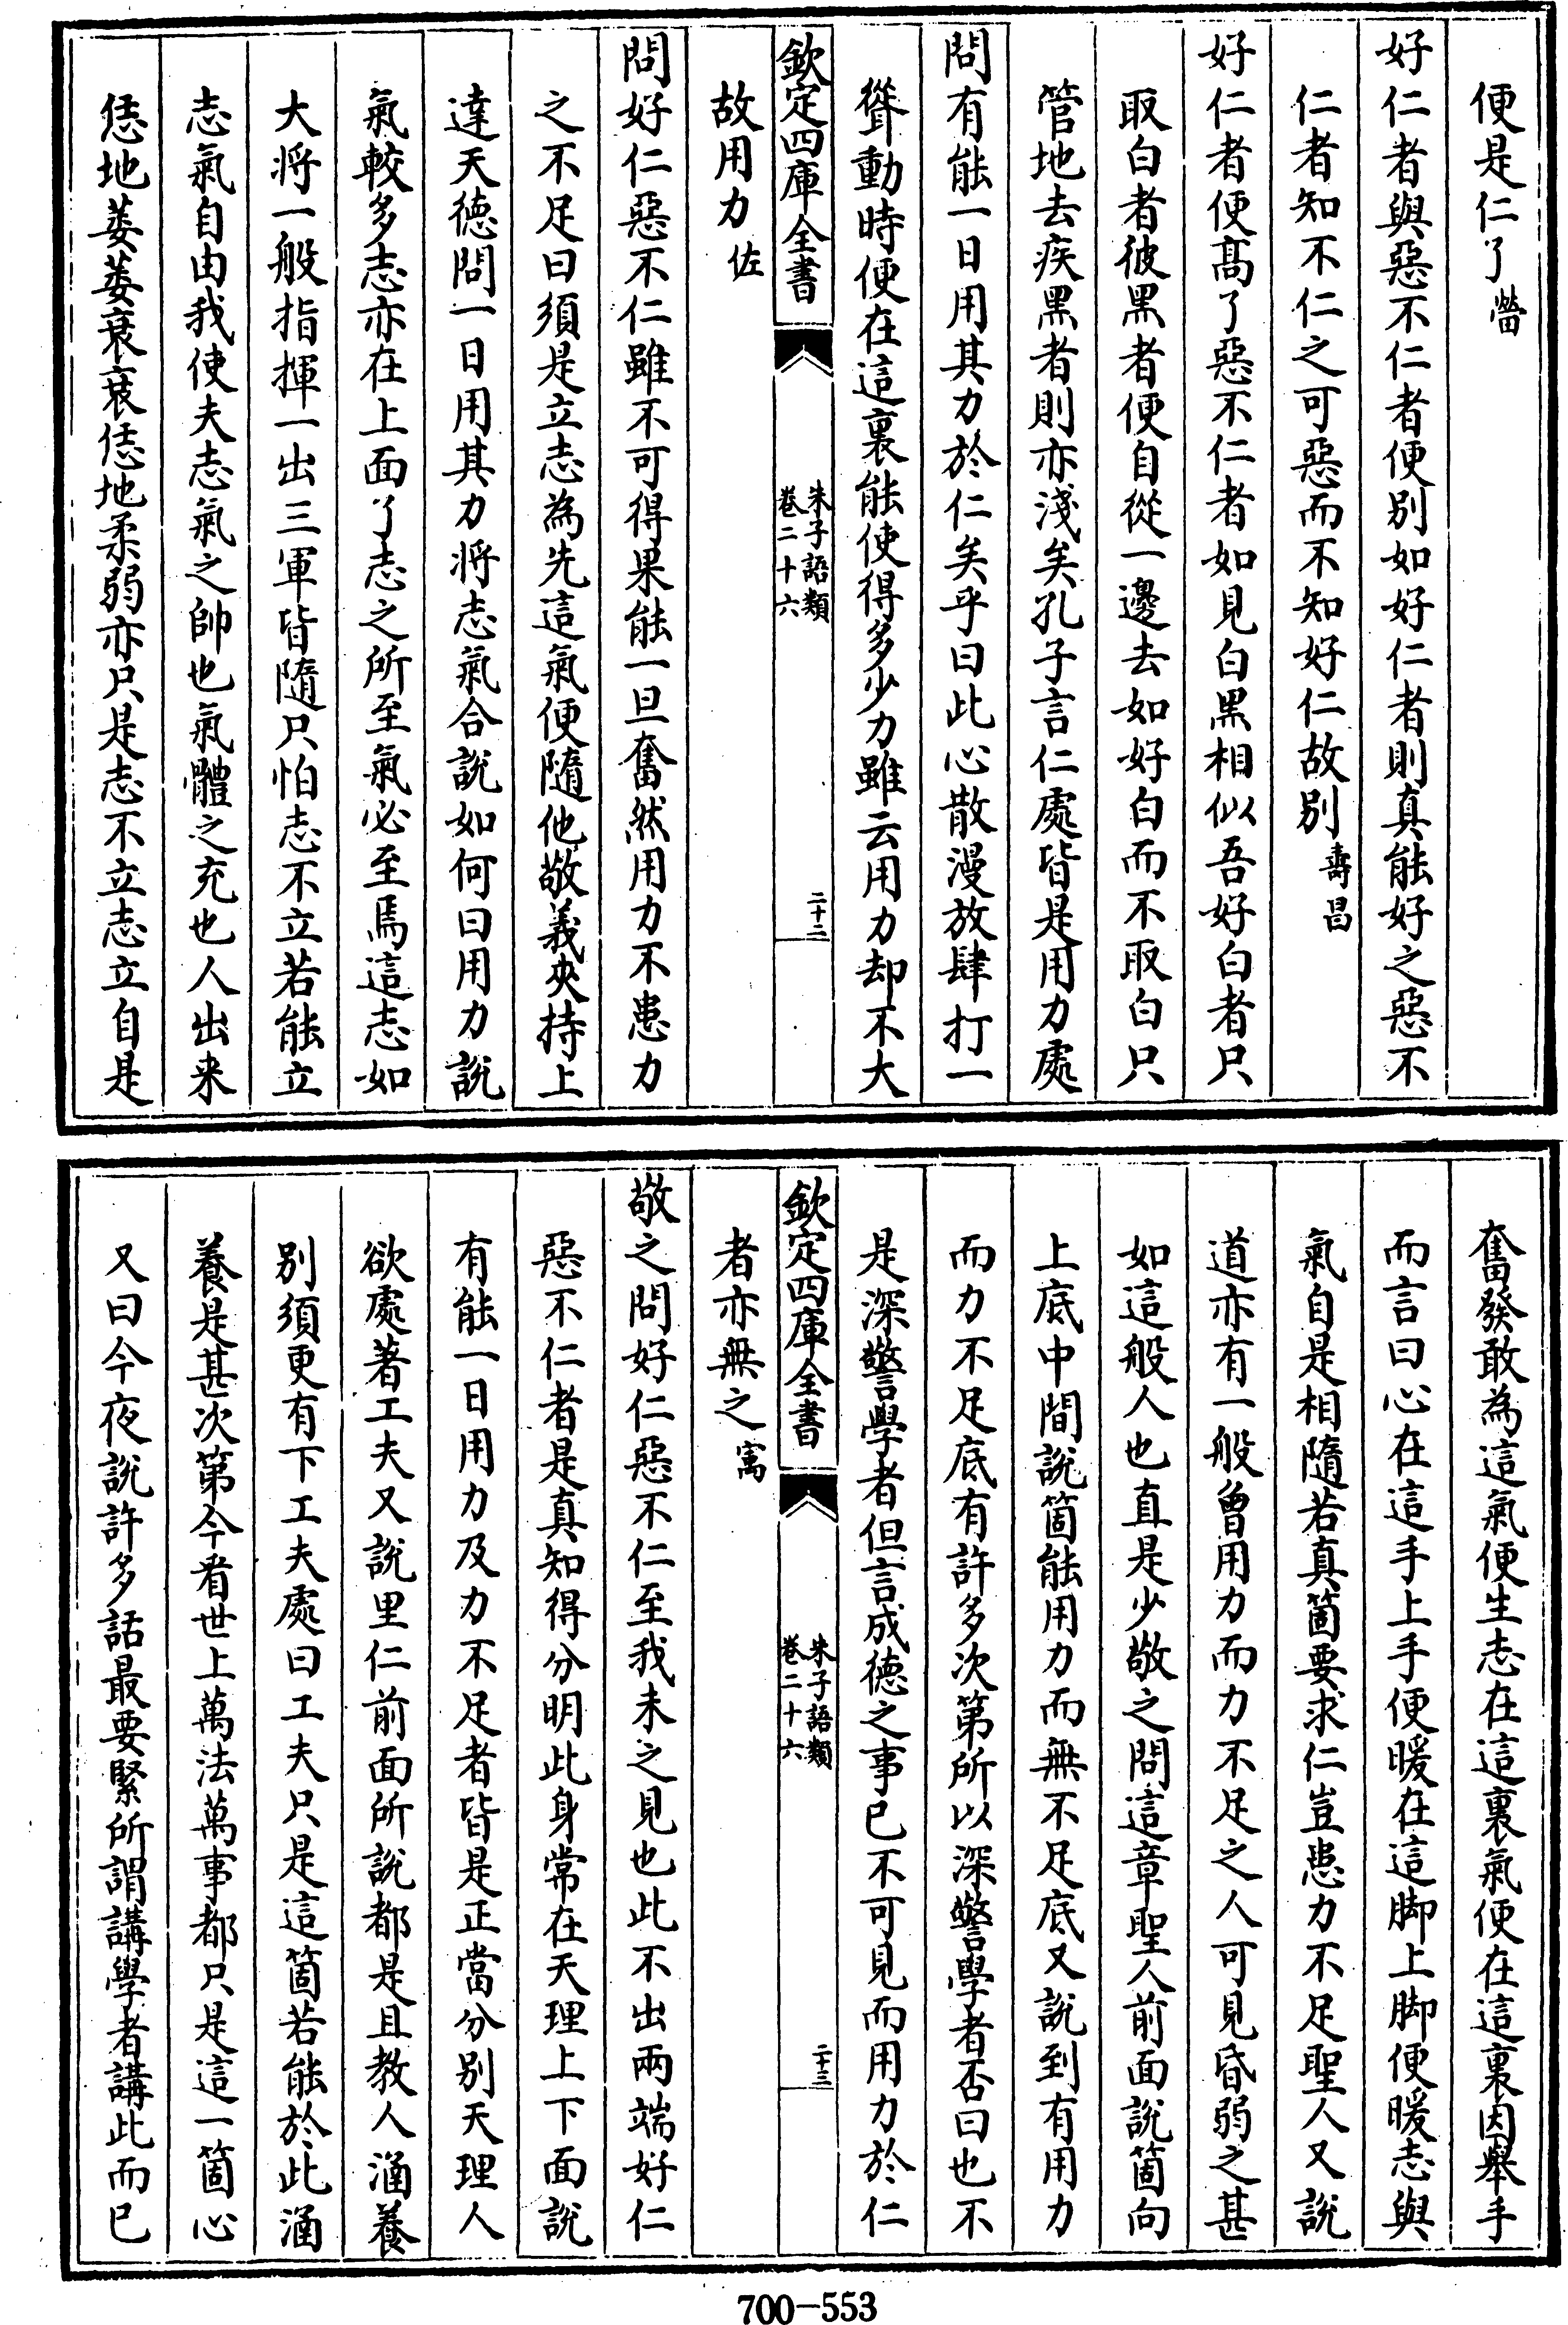 便是仁了㽦
好仁者與惡不仁者便别如好仁者則真能好之惡不
仁者知不仁之可惡而不知好仁故别壽昌
好仁者便高了惡不仁者如見白黑相似吾好白者只
取白者彼黑者便自從一邊去如好白而不取白只
管地去疾黑者則亦淺矣孔子言仁處皆是用力處
問有能一日用其力於仁矣乎曰此心散漫放肆打一
聳動時便在這裏能使得多少力雖云用力却不大
欽定四庫全書
朱子語類
卷二十六
二十二
故用力佐
問好仁惡不仁雖不可得果能一旦奮然用力不患力
之不足曰須是立志為先這氣便隨他敬義夾持上
達天德問一日用其力將志氣合說如何曰用力說
氣較多志亦在上面了志之所至氣必至焉這志如
大將一般指揮一出三軍皆隨只怕志不立若能立
志氣自由我使夫志氣之帥也氣體之充也人出来
恁地萎萎衰衰恁地柔弱亦只是志不立志立自是
奮發敢為這氣便生志在這裏氣便在這裏因舉手
而言曰心在這手上手便暖在這脚上脚便暖志與
氣自是相隨若真箇要求仁豈患力不足聖人又說
道亦有一般曾用力而力不足之人可見昏弱之甚
如這般人也直是少敬之問這章聖人前面說箇向
上底中間說箇能用力而無不足底又說到有用力
而力不足底有許多次第所以深警學者否曰也不
是深警學者但言成德之事已不可見而用力於仁
欽定四庫全書
朱子語類
卷二十六
二十三
者亦無之㝢
敬之問好仁惡不仁至我未之見也此不出兩端好仁
惡不仁者是真知得分明此身常在天理上下面說
有能一日用力及力不足者皆是正當分别天理人
欲處著工夫又說里仁前面所說都是且教人涵養
别須更有下工夫處曰工夫只是這箇若能於此涵
養是甚次第今看世上萬法萬事都只是這一箇心
又曰今夜說許多話最要緊所謂講學者講此而已
700-553